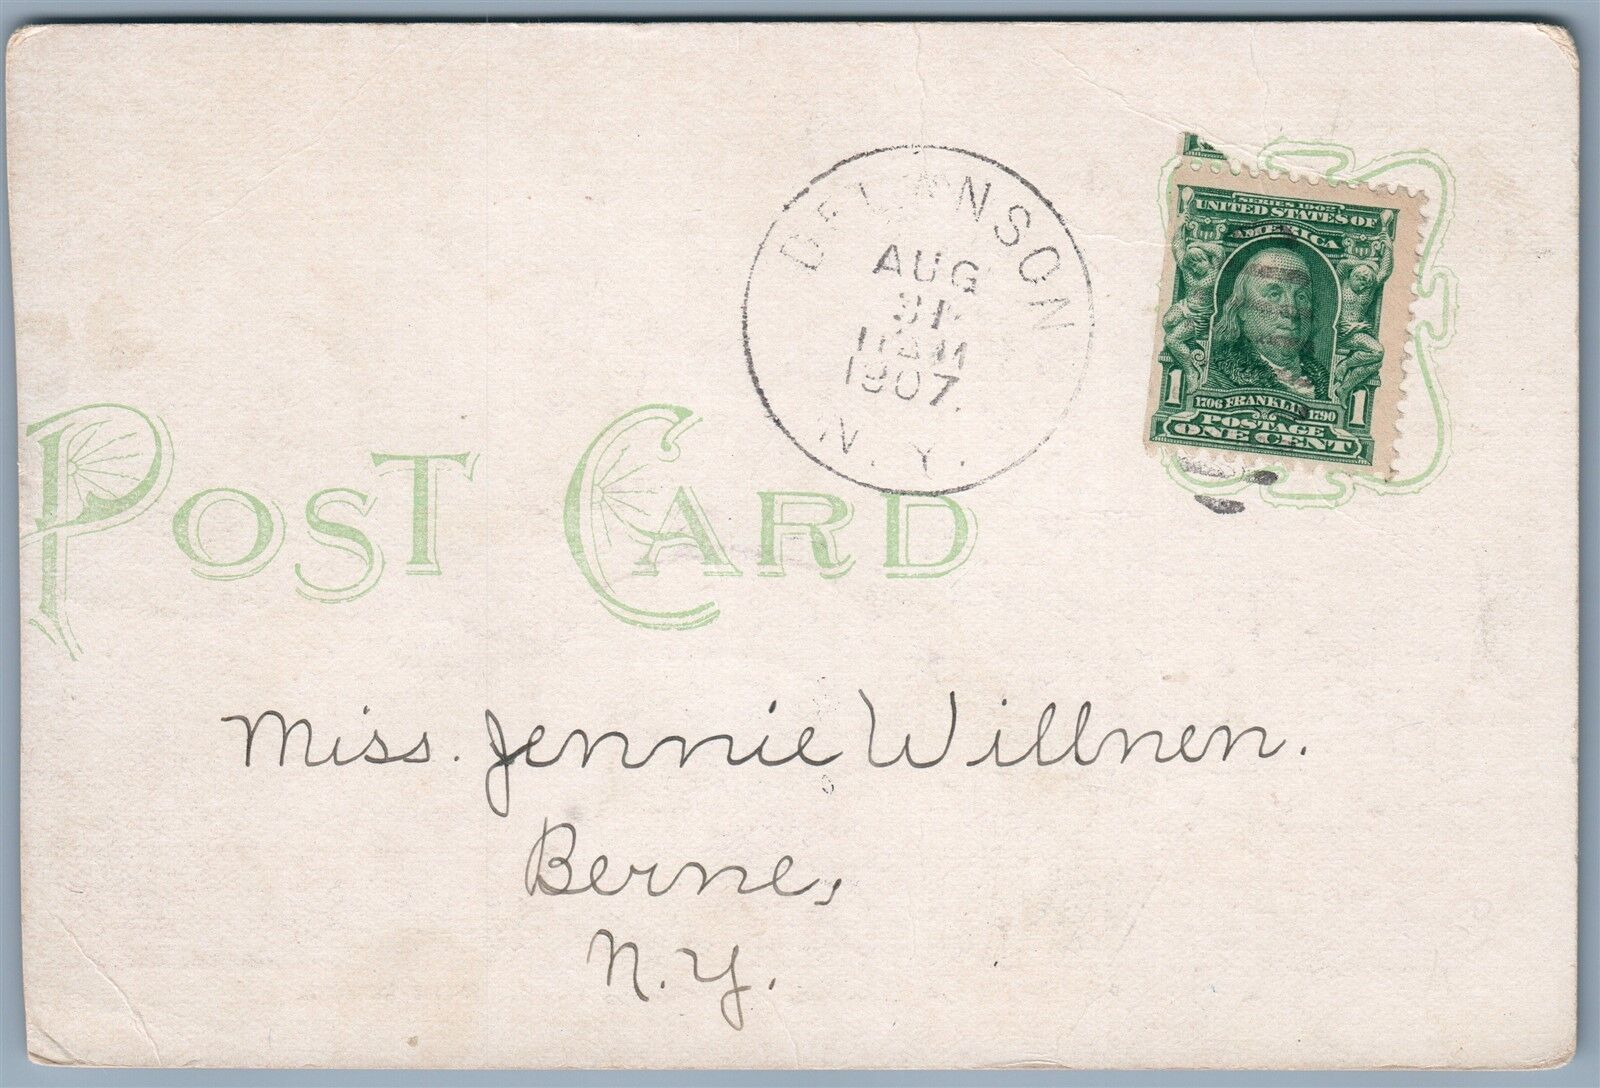 DELANSON
AUG
31
11 AM
1907.
N. Y.
SERIES 1902
UNITED STATES OF
AMERICA
1 1706 FRANKLIN 1790 1
POSTAGE
ONE CENT
POST CARD
Miss. Jennie Willnen.
Berne,
N.Y.